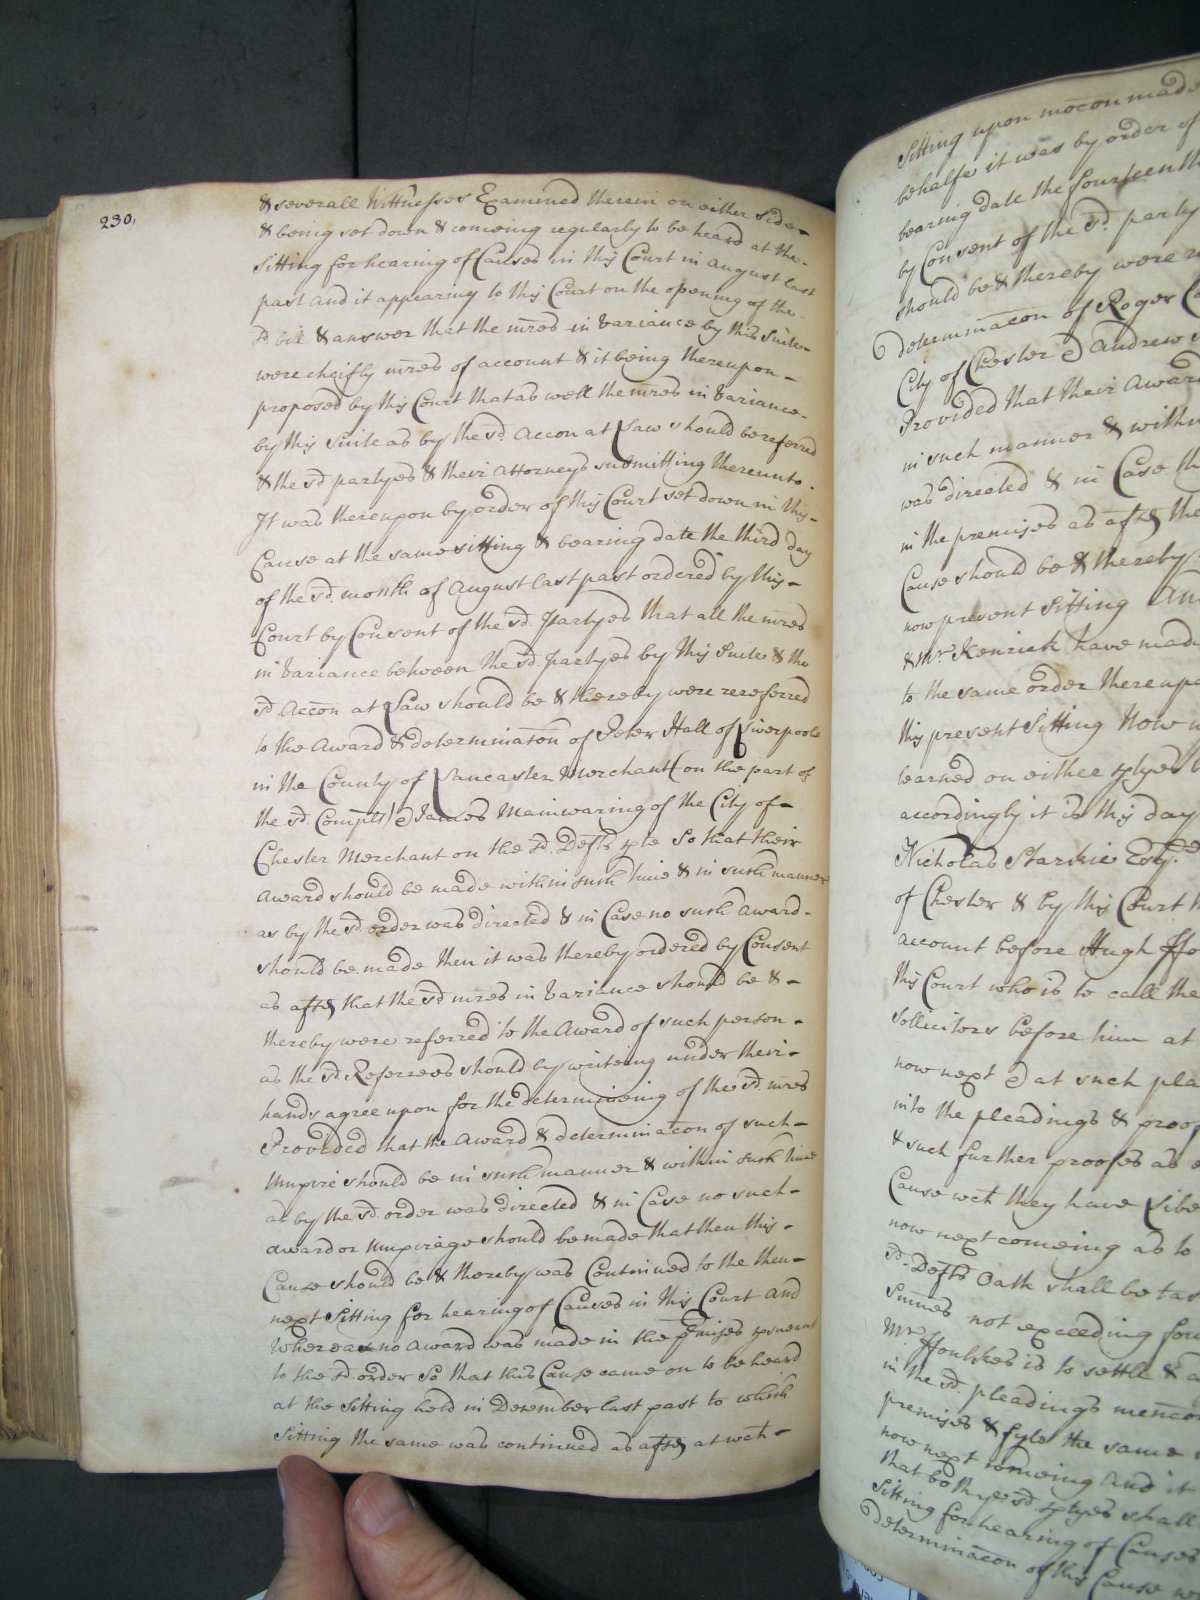 230,
& severall Wittnesses Examined therein on either side
& being set down & comeing regularly to be heard at the
Sitting for hearing of Causes in this Court in August last
past and it appearing to this Court on the opening of the
sd. bill & answer that the mres in variance by this Suite
were cheifly mres of account & it being thereupon
proposed by this Court that as well the mres in variance
by this Suite as by the sd. Accon at Law should be referred
& the sd partyes & their attorneys submitting thereunto.
It was thereupon by order of this Court set down in this
Cause at the same sitting & bearing date the third day
of the sd. month of August last past ordered by this
Court by Consent of the sd. Partyes that all the mres
in variance between the sd. partyes by this Suite & the
sd. Accon at Law should be & thereby were rereferred
to the Award & determinacon of Peter Hall of Liverpoole
in the County of Lancaster Merchant (on the part of
the sd. Complts) & James Mainwaring of the City of
Chester Merchant on the sd. Defts pte So that their
Award should be made within such time & in such manner
as by the sd. order was directed & in Case no such Award
should be made then it was thereby ordered by Consent
as afsd that the sd mres in variance should be &
thereby were referred to the Award of such person
as the sd. Referrees should by writeing under their
hands agree upon for the determineing of the sd. mres
Provided that the Award & determinacon of such
Umpire should be in such manner & within such time
as by the sd. order was directed & in Case no such
award or Umpirage should be made that then this
Cause should be & thereby was Continued to the then
next Sitting for hearing of Causes in this Court And
Whereas no Award was made in the pmises psueant
to the sd. order So that this Cause came on to be heard
at the Sitting held in December last past to which
Sitting the same was continued as afsd at wch
Sitting upon mocon made
behalfe it was by order of
bearing date the fourteenth
by Consent of the sd. party
should be & thereby were
determinacon of Roger
City of Chester & Andrew
Provided that their Award
in such manner & within
was directed & in Case th
in the premises as afsd the
Cause should be & thereby
now present Sitting And
& Mr. Kenrick have made
to the same order thereupo
this present Sitting Now
learned on either ptyes
accordingly it is this day
Nicholas Starkie Esqr.
of Chester & by this Court
account before Hugh Ffo
this Court who is to call the
Sollicitors before him at
now next & at such pla
into the pleadings & proof
& such further proofes as
Cause wch they have Libe
now next comeing as to
sd. Defts Oath shall be tak
Summes not exceeding fou
Mr. Ffoulkes is to settle &
in the sd. pleadings mencon
premises & fyle the same
now next comeing And it
that both ye sd. ptyes shall
Sitting for hearing of Causes
determinacon of this Cause